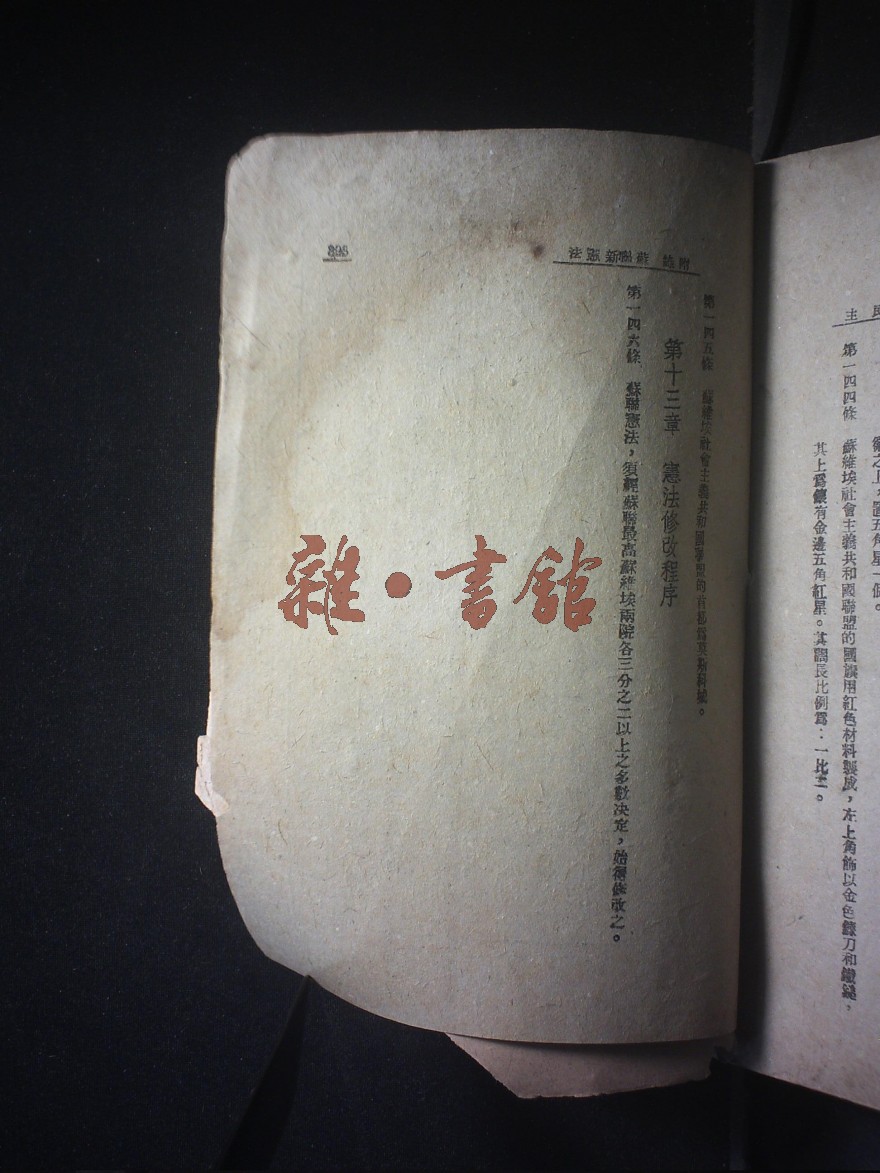 民主
徽之上，置五角星一個。
第一四四條　蘇維埃社會主義共和國聯盟的國旗用紅色材料製成，左上角飾以金色鐮刀和鐵鎚，
其上爲鑲有金邊五角紅星。其闊長比例爲：一比二。
附錄　蘇聯新憲法
第一四五條　蘇維埃社會主義共和國聯盟的首都爲莫斯科城。
第十三章　憲法修改程序
第一四六條　蘇聯憲法，須經蘇聯最高蘇維埃兩院各三分之二以上之多數決定，始得修改之。
雜·書館